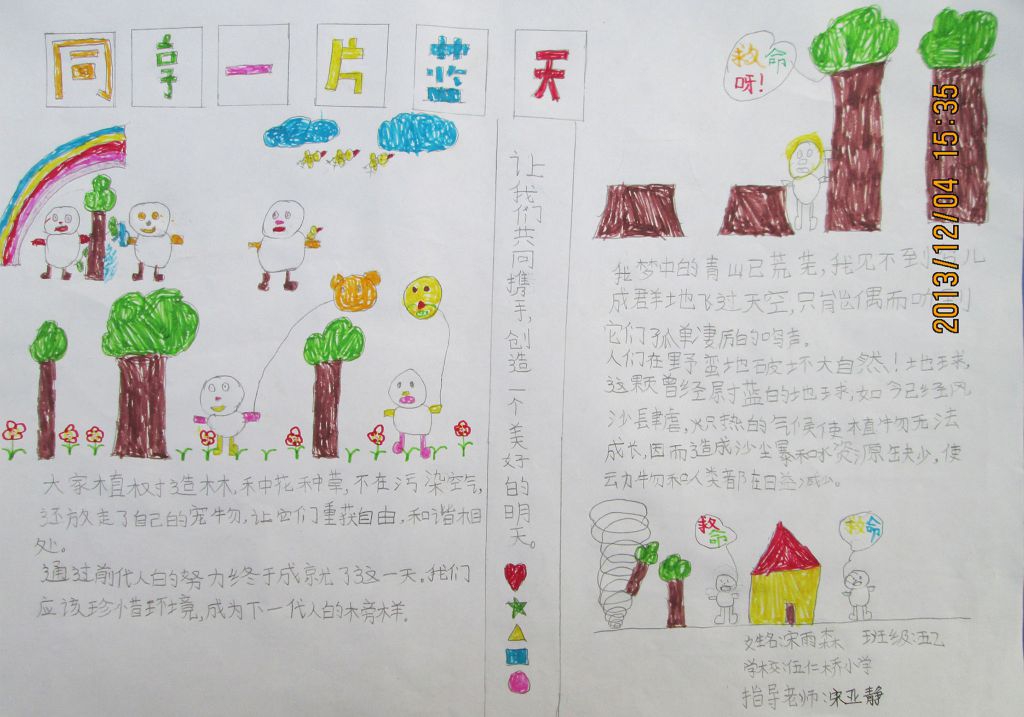 同享一片蓝天
救命
呀!
2013/12/04 15:35
让我们共同携手,创造一个美好的明天。
我梦中的青山已荒芜,我见不到鸟儿
成群地飞过天空,只能偶而听到
它们孤单凄厉的鸣声。
人们在野蛮地破坏大自然!地球,
这颗曾经蔚蓝的地球,如今已经风
沙肆虐,炽热的气候使植物无法
成长,因而造成沙尘暴和水资源缺少,使
动物和人类都在日益减少。
大家植树造林,种花种草,不在污染空气,
还放走了自己的宠物,让它们重获自由,和谐相
处。
通过前代人的努力终于成就了这一天。我们
应该珍惜环境,成为下一代人的榜样。
救命
救命
姓名:宋雨森 班级:五乙
学校:伍仁桥小学
指导老师:宋亚静